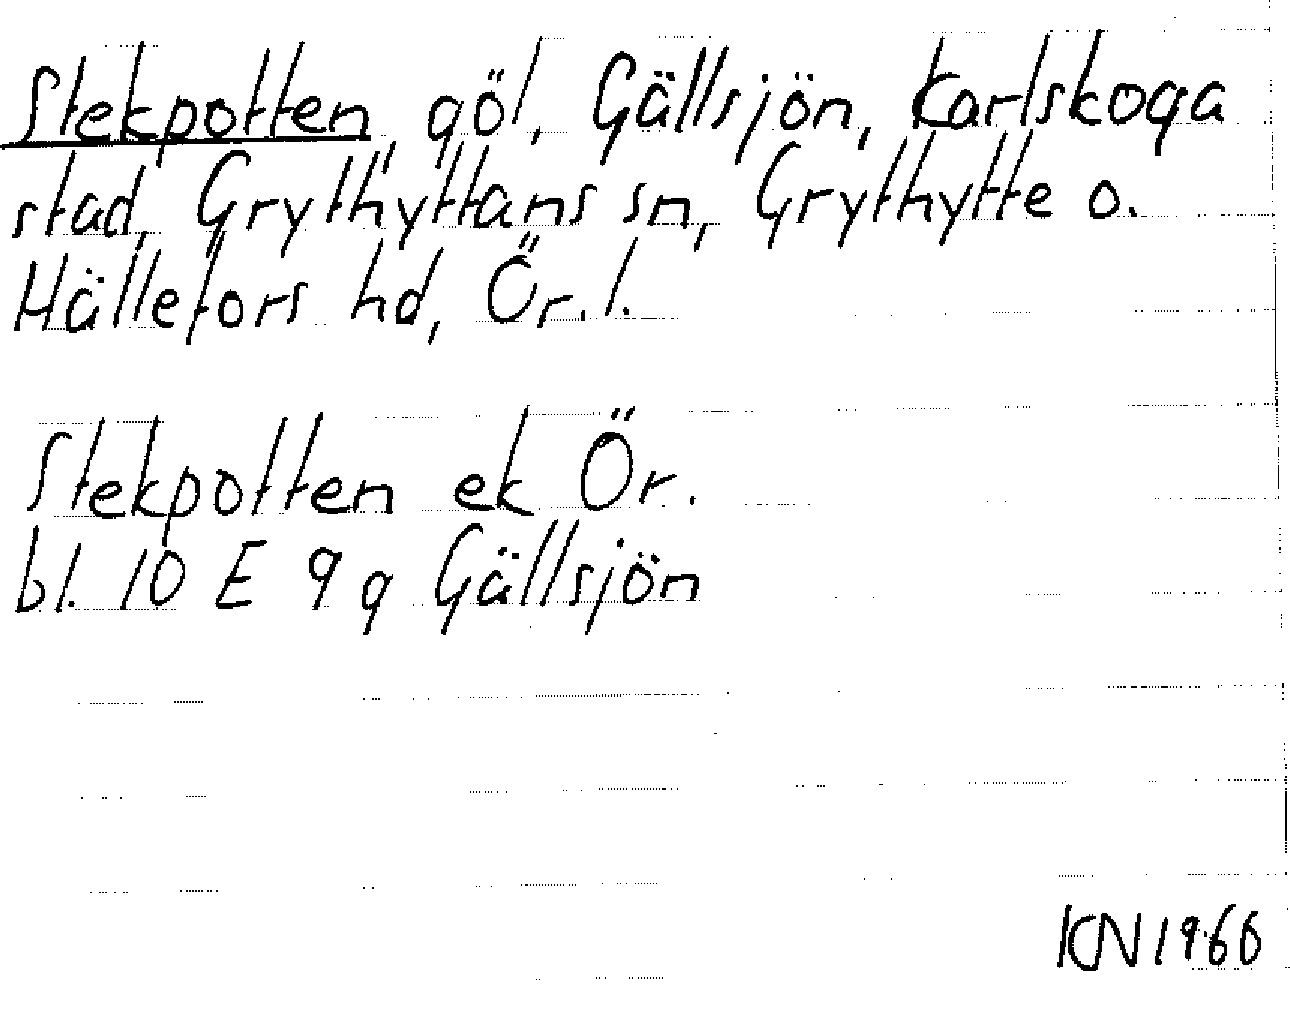 Stekpotten, göl, Gällsjön, Karlskoga
stad, Grythyttans sn, Grythytte o.
Hällefors hd, Ör. l.
Stekpotten ek Ör.
bl. 10 E 9 g Gällsjön
KN 1966